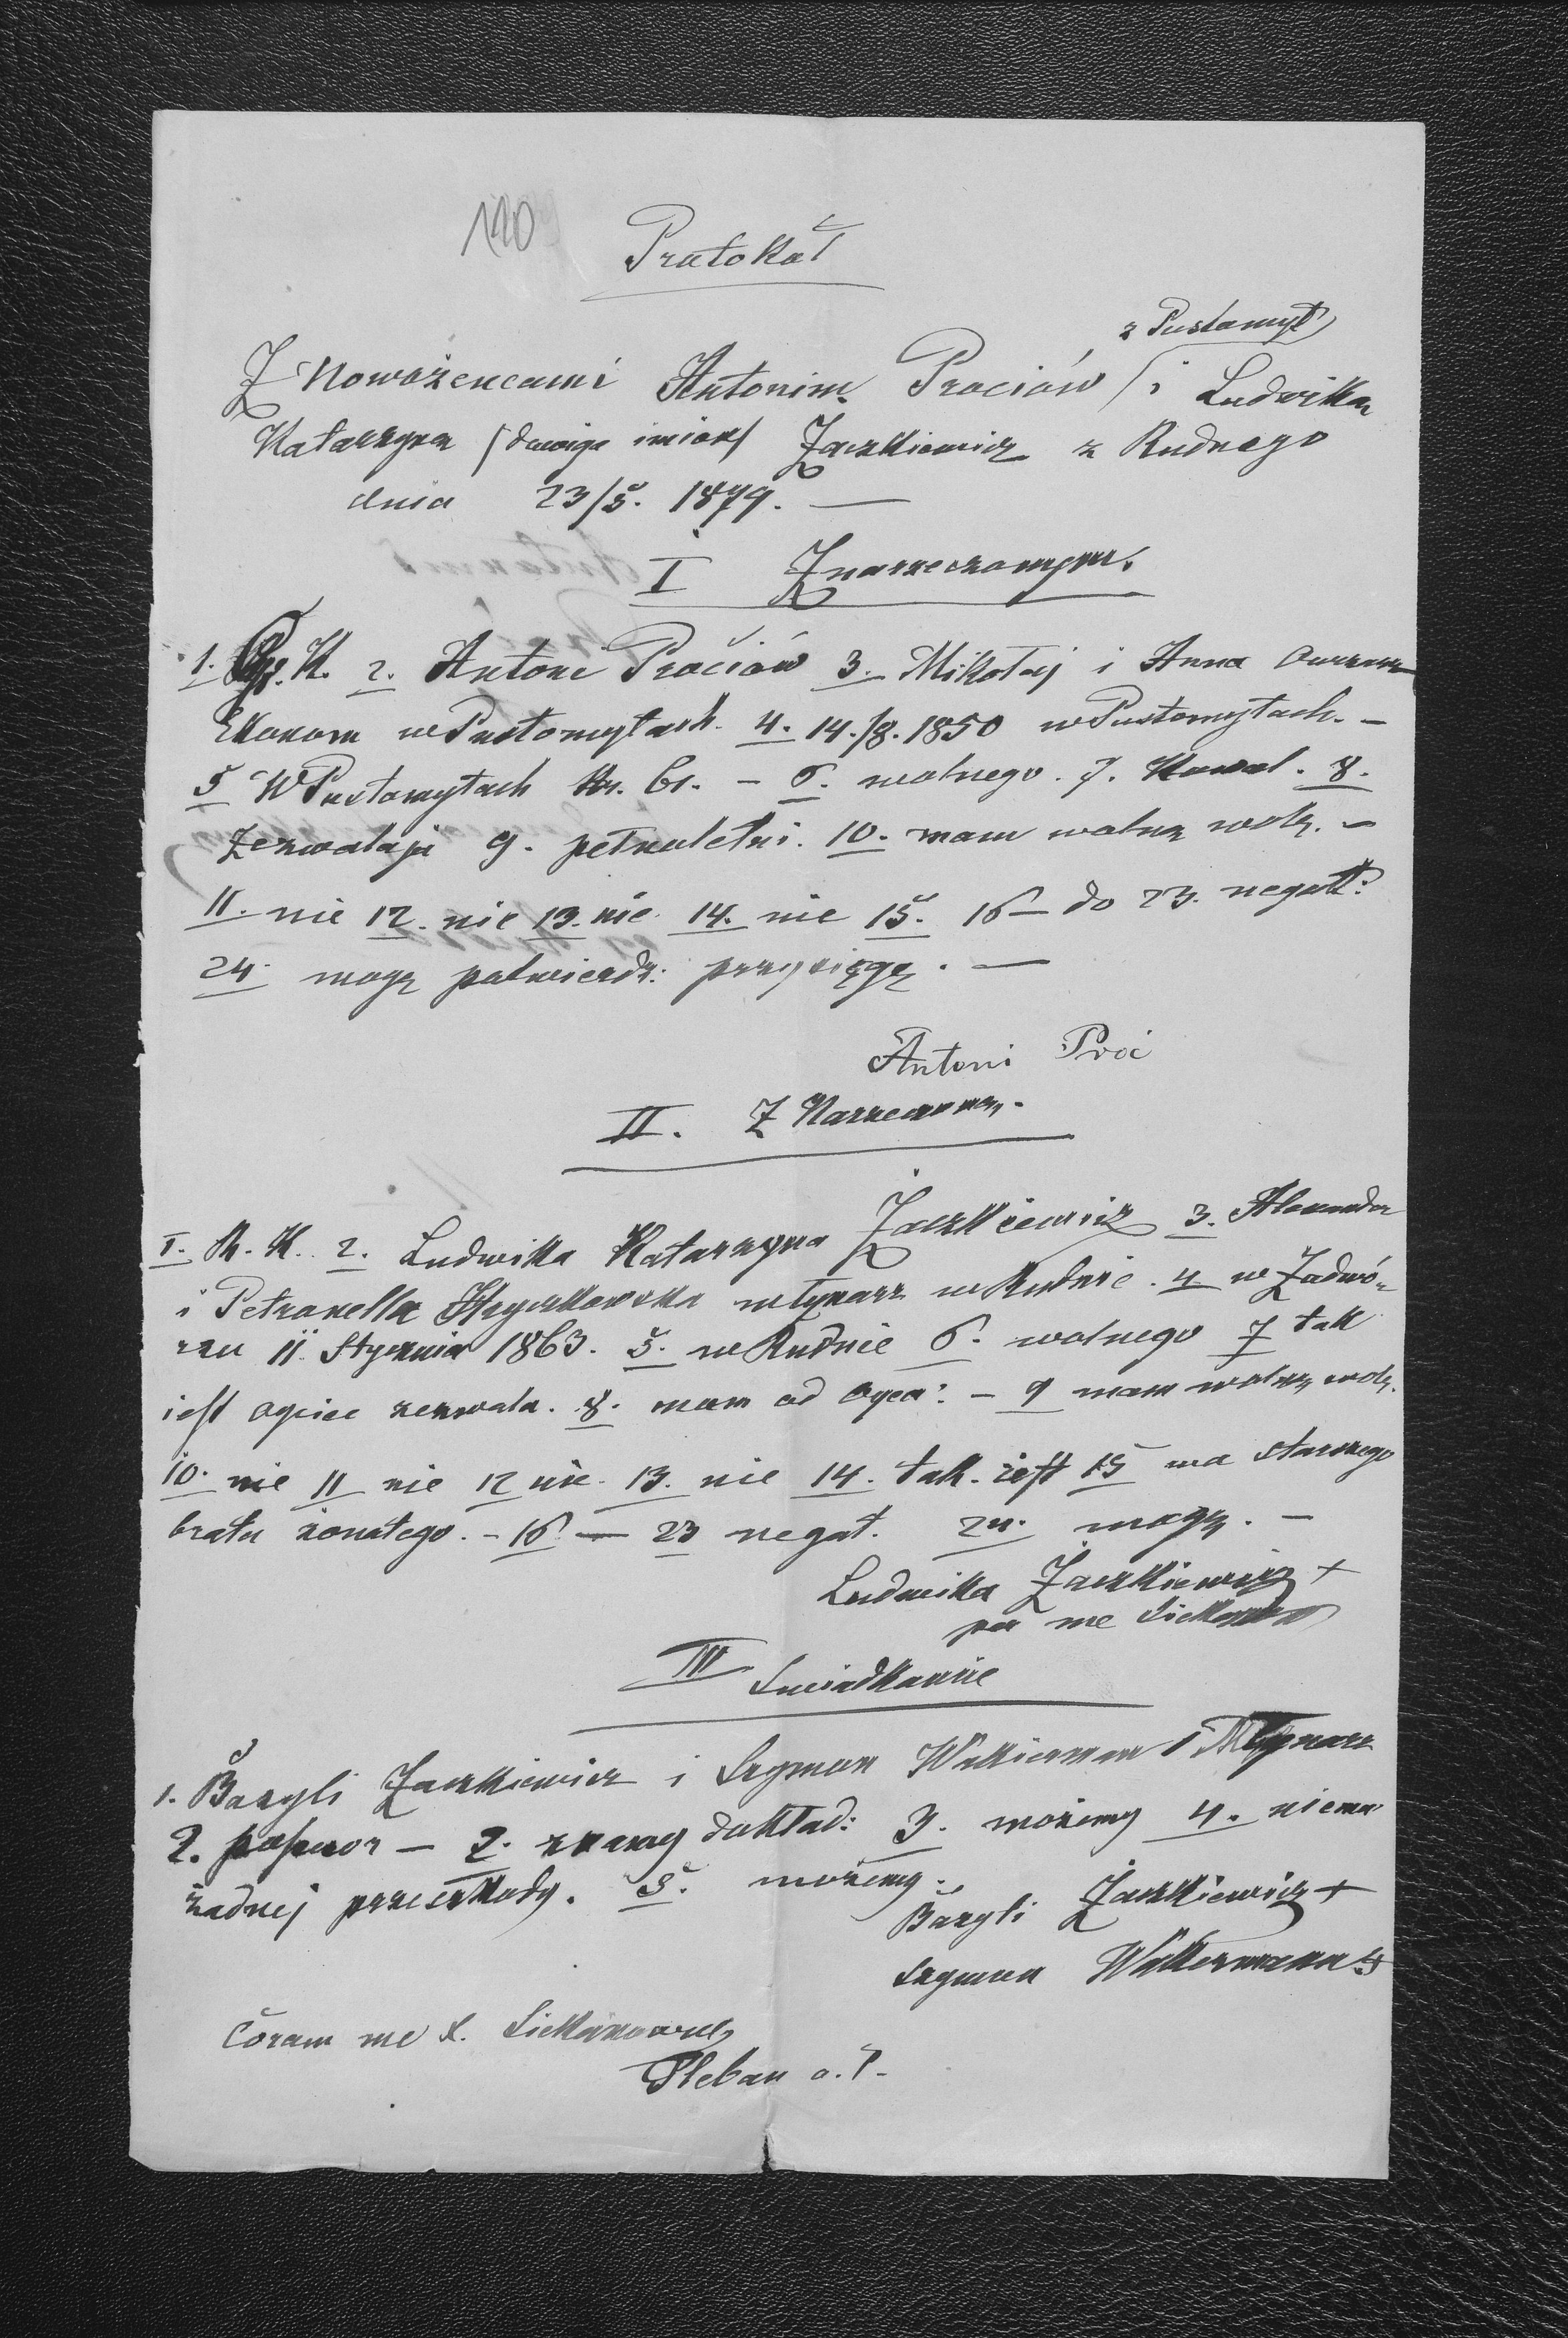 120
Protokół
z Pustomyt
Z Nowożeńcami Antonim Prociów / i Ludwika
Katarzyna /dwojga imion/ Zaczkiewicz z Rudnego
dnia 23/5. 1879. —
I Z narzeczonym.
1. K. 2. Antoni Prociów 3. Mikołaj i Anna
Ekonom w Pustomytach. 4. 14./8. 1850 w Pustomytach. —
5 W Pustomytach Nr. 61. — 6. wolnego. 7. Kawal. 8.
Zezwalają 9. pełnoletni. 10. mam wolną wolę. —
11. nie 12. nie 13. nie 14. nie 15. 16 — do 23. negat:
24. mogę potwierdz: przysięgą. —
Antoni Proć
II. Z Narzeczoną.
I. R. K. 2. Ludwika Katarzyna Żaczkiewicz 3. Alexander
i Petronella młynarz w Rudnie. 4 w Zadwó-
rzu 11. Stycznia 1863. 5. w Rudnie 6. wolnego 7 tak
jest ojciec zezwala. 8. mam od ojca: — 9 mam wolną wolę.
10. nie 11 nie 12 nie. 13. nie 14. tak. jest 15 ma starszego
brata żonatego. - 16 — 23 negat. 24. mogę. —
Ludwika Żaczkiewicz +
per me
III Świadkowie
1. Bazyli Zaczkiewicz i Szymon Młynarz
2. — 2. znamy dokład: 3. możemy 4. niema
żadnej przeszkody. 5. możemy.
Bazyli Żaczkiewicz +
Szymon +
Coram me X.
Pleban o. ł.